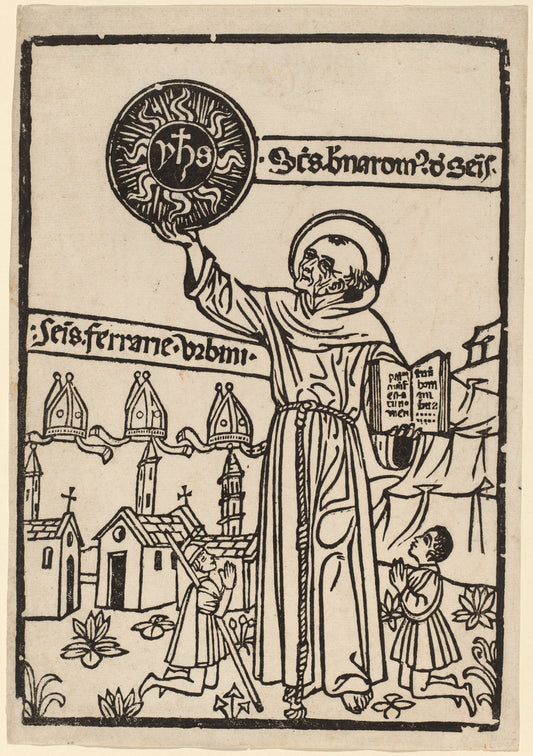 yhs
·Sc̄s. b̄nardinꝰ d̄ Seīs·
·Seīs·ferrarie·vrbini·
pat̄
manif
esta
ui no
men
tuū
hom
ini
bus